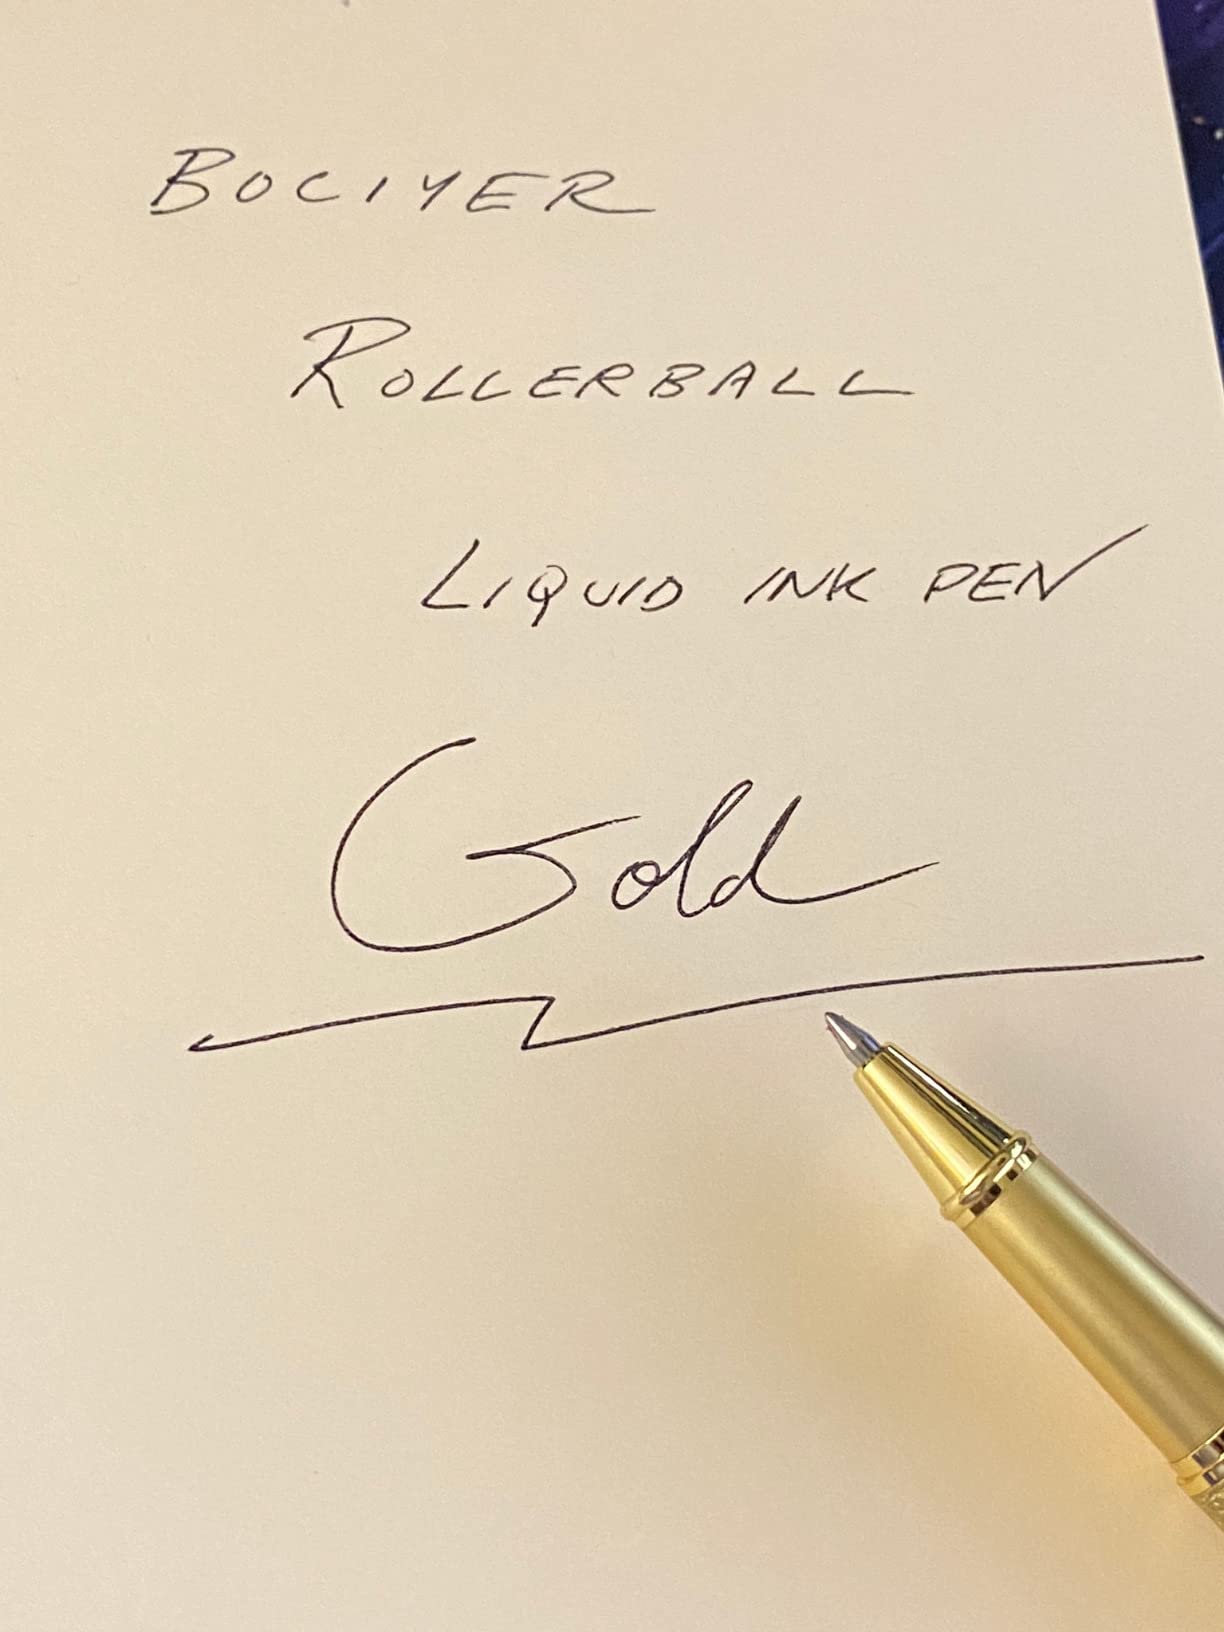 BOCIYER
ROLLERBALL
LIQUID INK PEN
Gold